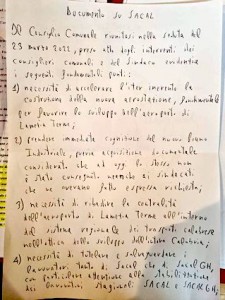 Documento su SACAL
Il Consiglio Comunale riunitosi nella seduta del
23 marzo 2022, preso atto degli interventi dei
consiglieri comunali e del Sindaco evidenzia
i seguenti fondamentali punti:
1) necessità di accelerare l'iter inerente la
costruzione della nuova aerostazione, fondamentale
per favorire lo sviluppo dell'aeroporto di
Lamezia Terme;
2) prendere immediata cognizione del nuovo Piano
Industriale, previa acquisizione documentale
considerato che ad oggi lo stesso non
è stato consegnato neanche ai sindacati
che ne avevano fatto espressa richiesta;
3) necessità di ribadire la centralità
dell'aeroporto di Lamezia Terme all'interno
del sistema regionale dei trasporti calabrese
nell'ottica dello sviluppo dell'intera Calabria;
4) necessità di tutelare e salvaguardare i
lavoratori tutti di Sacal che di Sacal GH,
con particolare attenzione alla stabilizzazione
dei lavoratori stagionali SACAL e SACAL GH;